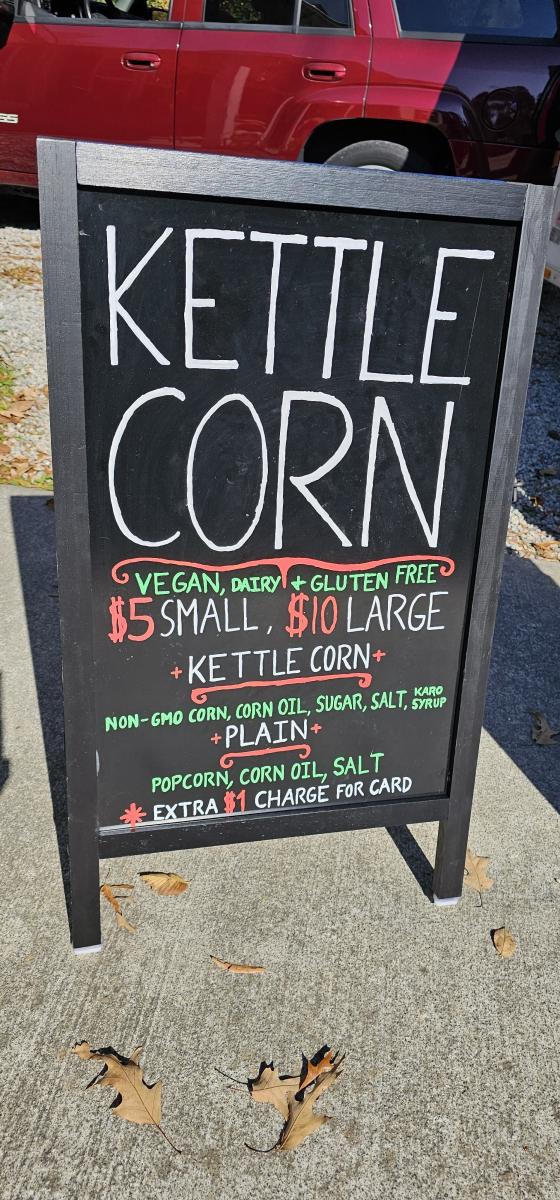 KETTLE
CORN
VEGAN, DAIRY + GLUTEN FREE
$5 SMALL, $10 LARGE
+KETTLE CORN+
NON-GMO CORN, CORN OIL, SUGAR, SALT, KARO SYRUP
+PLAIN+
POPCORN, CORN OIL, SALT
* EXTRA $1 CHARGE FOR CARD